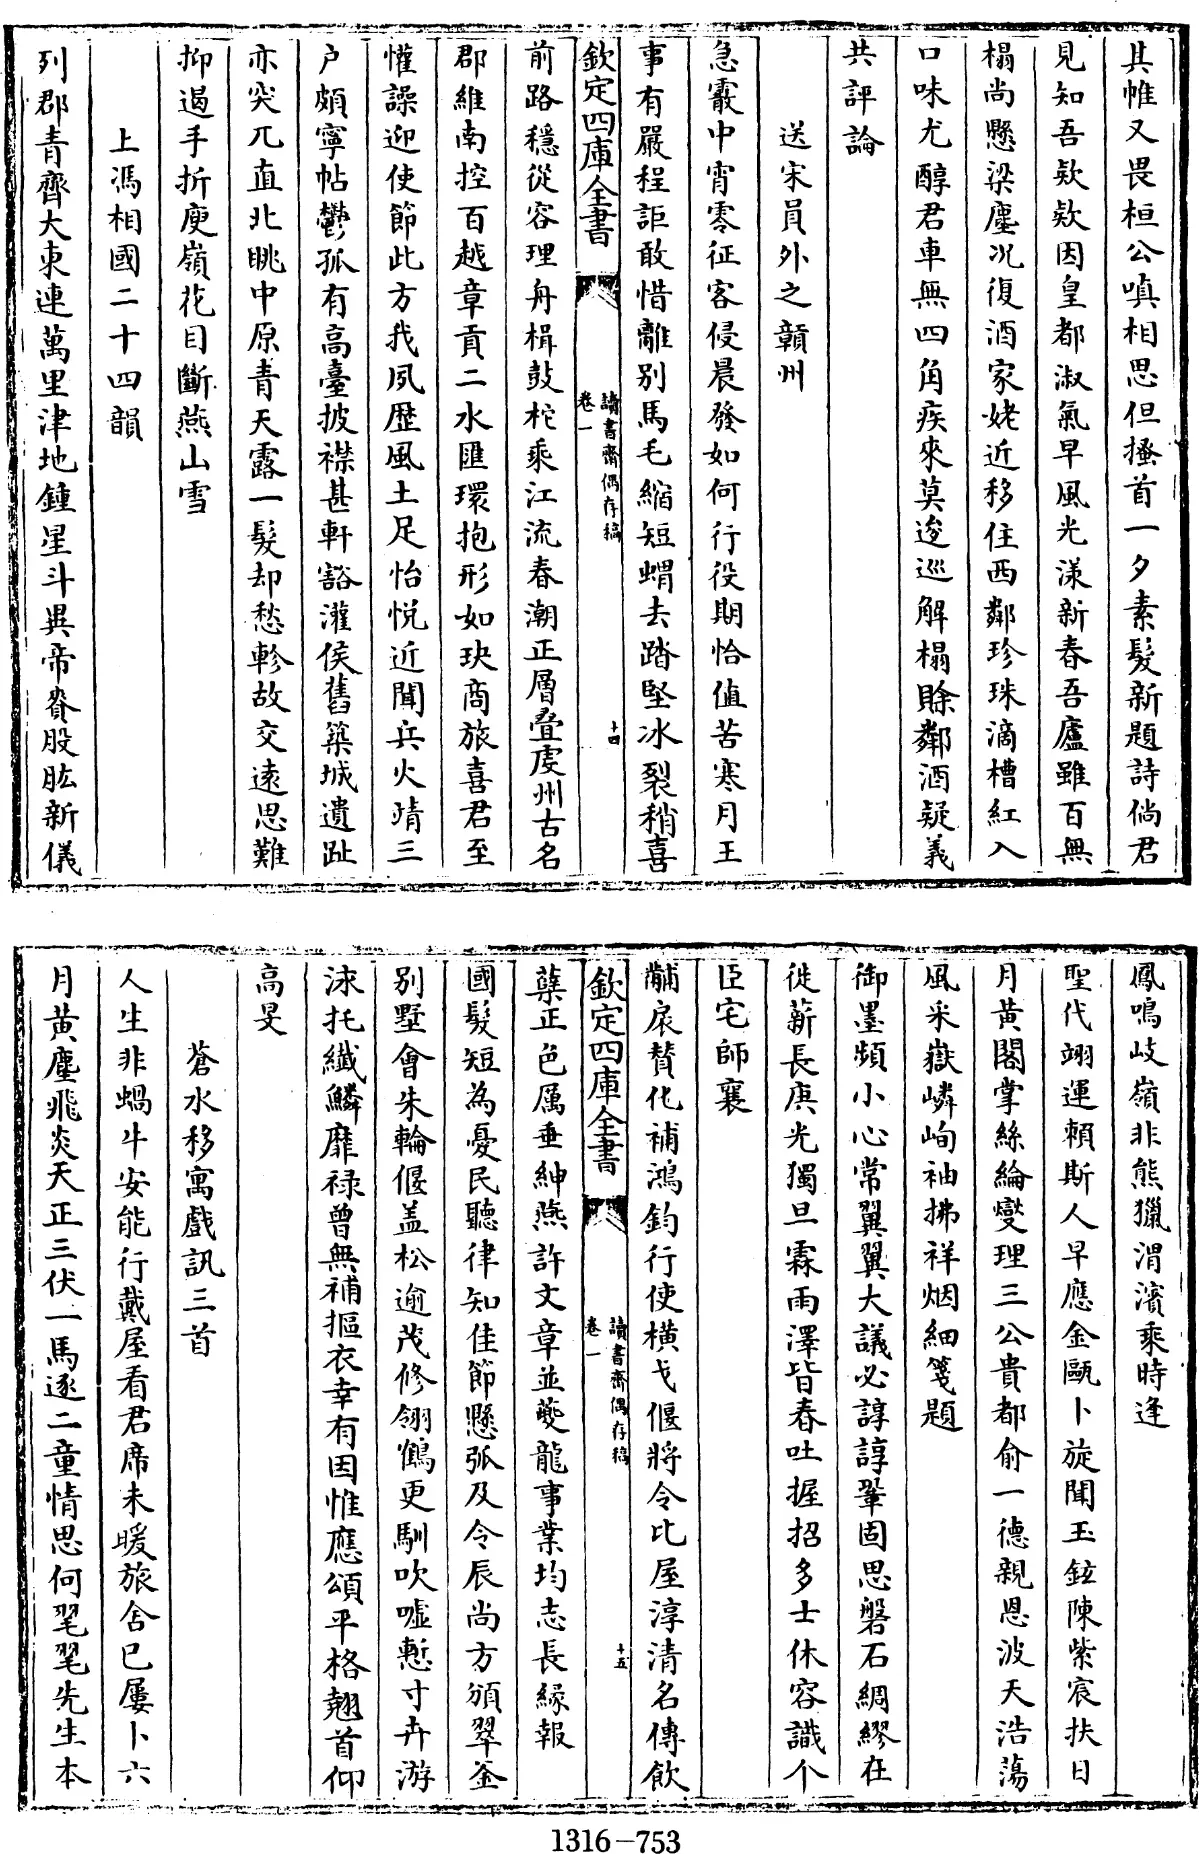 其帷又畏桓公嗔相思但搔首一夕素髮新題詩倘君
見知吾欵欵因皇都淑氣早風光漾新春吾廬雖百無
榻尚懸梁塵况復酒家姥近移住西鄰珍珠滴槽紅入
口味尤醇君車無四角疾來莫逡巡解榻賒鄰酒疑義
共評論
送宋員外之贛州
急霰中宵零征客侵晨發如何行役期恰值苦寒月王
事有嚴程詎敢惜離別馬毛縮短蝟去踏堅冰裂稍喜
欽定四庫全書
讀書齋偶存稿
卷一
十四
前路穩從容理舟楫鼓柁乘江流春潮正層疊虔州古名
郡維南控百越章貢二水匯環抱形如玦商旅喜君至
懽譟迎使節此方我夙歷風土足怡悦近聞兵火靖三
户頗寧帖鬱孤有高臺披襟甚軒豁灌侯舊築城遺趾
亦突兀直北眺中原青天露一髮却愁軫故交遠思難
抑遏手折庾嶺花目斷燕山雪
上馮相國二十四韻
列郡青齊大東連萬里津地鍾星斗異帝賚股肱新儀
鳳鳴岐嶺非熊獵渭濱乘時逢
聖代翊運賴斯人早應金甌卜旋聞玉鉉陳紫宸扶日
月黄閣掌絲綸燮理三公貴都俞一德親恩波天浩蕩
風采嶽嶙峋袖拂祥烟細箋題
御墨頻小心常翼翼大議必諄諄鞏固思磐石綢繆在
徙薪長庚光獨旦霖雨澤皆春吐握招多士休容識个
臣宅師襄
黼扆賛化補鴻鈞行使横戈偃將令比屋淳清名傳飲
欽定四庫全書
讀書齋偶存稿
卷一
十五
蘖正色厲垂紳燕許文章並夔龍事業均志長縁報
國髮短為憂民聽律知佳節懸弧及令辰尚方頒翠釜
别墅會朱輪偃盖松逾茂修翎鶴更馴吹嘘慙寸卉游
泳托纎鱗靡禄曾無補摳衣幸有因惟應頌平格翹首仰
高旻
蒼水移寓戲訊三首
人生非蝸牛安能行戴屋看君席未暖旅舍已屢卜六
月黄塵飛炎天正三伏一馬逐二童情思何毣毣先生本
1316-753